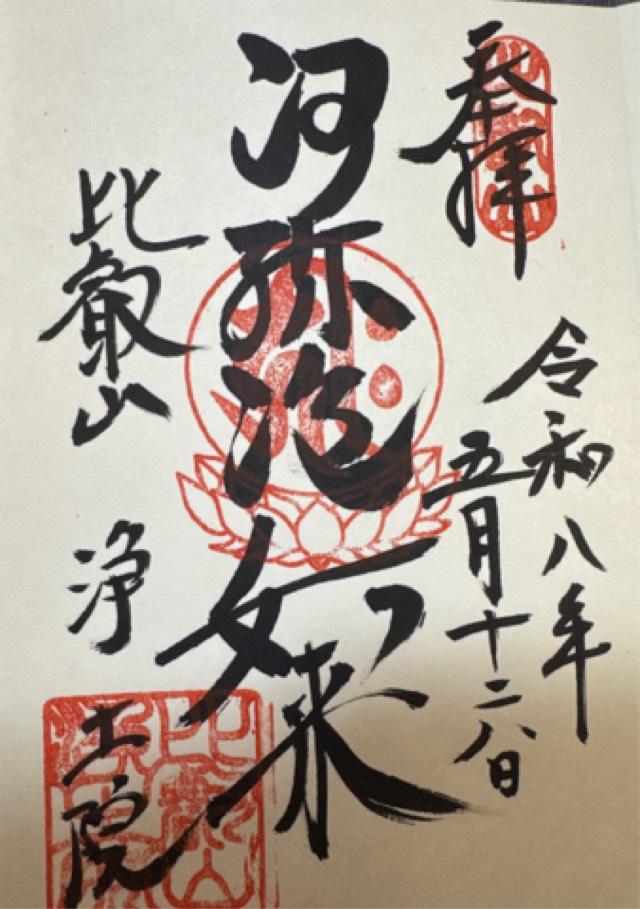 奉拝
令和八年
五月十六日
阿弥陀如来
比叡山
浄土院